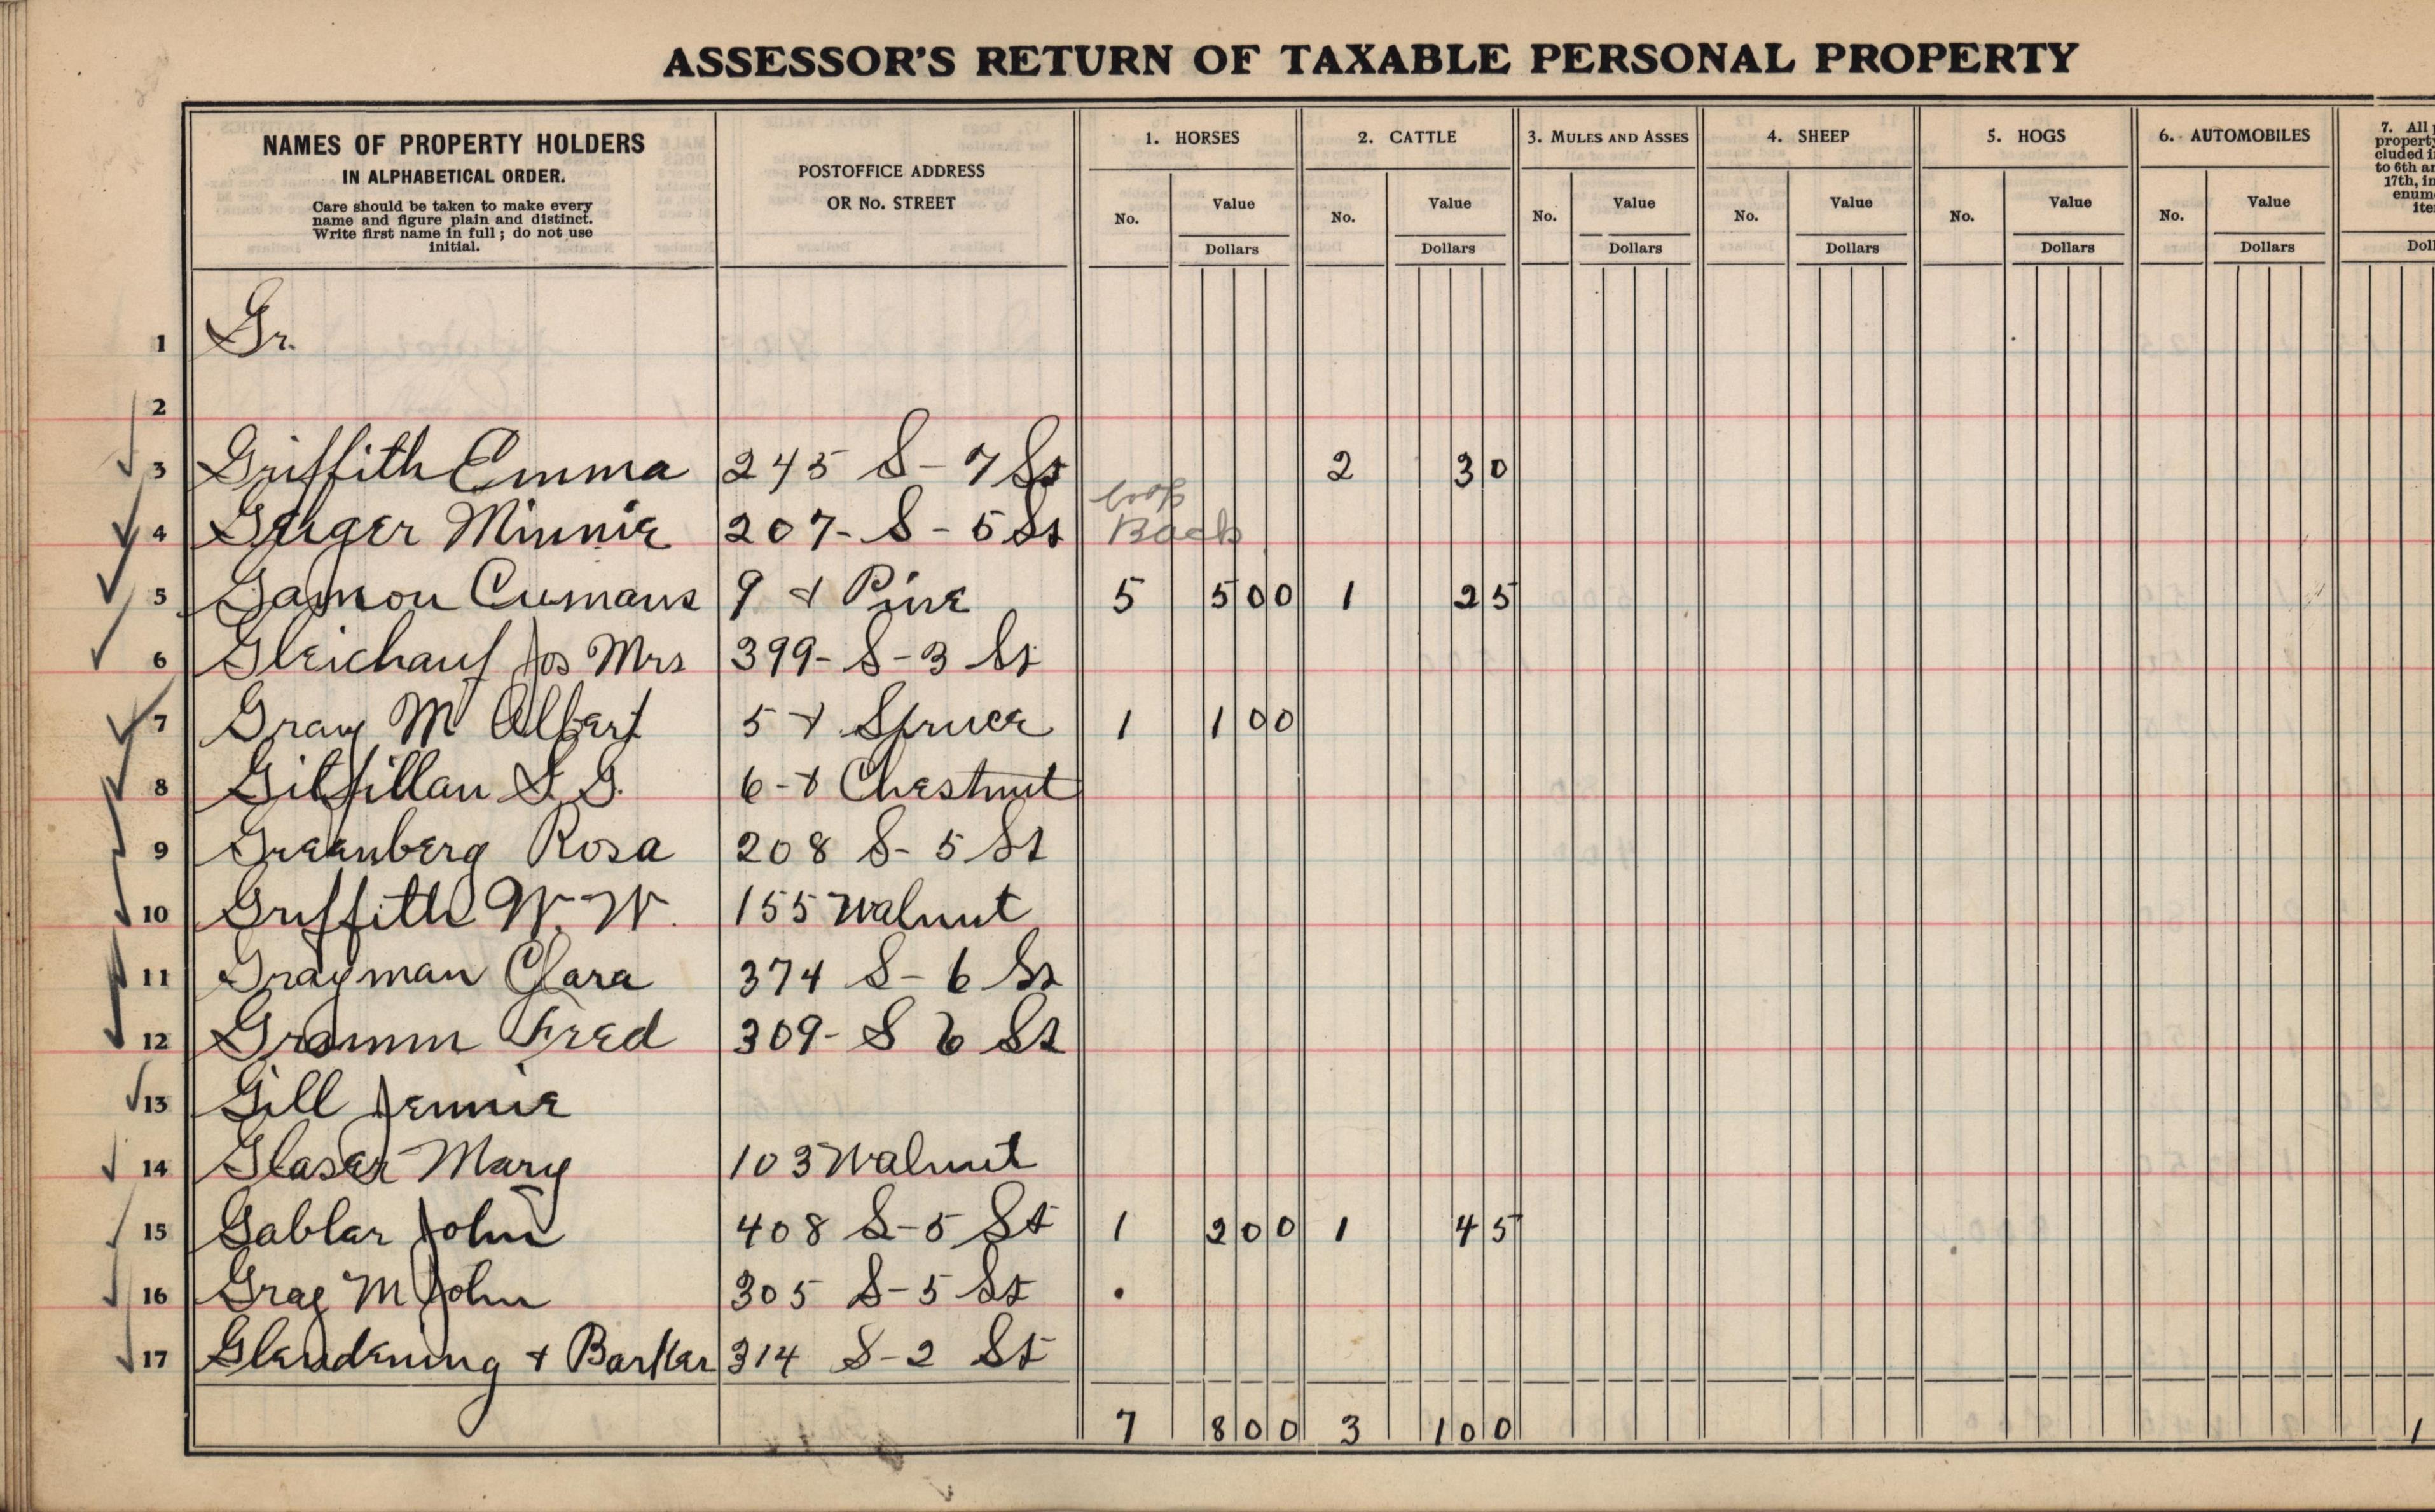 ASSESSOR'S RETURN OF TAXABLE PERSONAL PROPERTY
NAMES OF PROPERTY HOLDERS
IN ALPHABETICAL ORDER.
Care should be taken to make every
name and figure plain and distinct.
Write first name in full; do not use
initial.
POSTOFFICE ADDRESS
OR No. STREET
1. HORSES
No. Value
Dollars
2. CATTLE
No. Value
Dollars
3. MULES AND ASSES
No. Value
Dollars
4. SHEEP
No. Value
Dollars
5. HOGS
No. Value
Dollars
6. AUTOMOBILES
No. Value
Dollars
7. All
property
to 6th
17th, in
1 Gr.
2
3 Griffith Emma 245 S-7 St 2 30
4 Geiger Minnie 207-S-5 St Back
5 Gamon Cumans 9 + Pine 5 500 1 25
6 Gleichauf Jos Mrs 399-S-3 St
7 Gray M Albert 5 + Spruce 1 100
8 Gilfillan S. G. 6-+ Chestnut
9 Greenberg Rosa 208 S-5 St
10 Griffith W. W. 155 Walnut
11 Grayman Clara 374 S-6 St
12 Gramm Fred 309-S 6 St
13 Gill Jennie
14 Glaser Mary 103 Walnut
15 Gabler John 408 S-5 St 1 200 1 45
16 Gray M John 305 S-5 St
17 Glendening + Barker 314 S-2 St
7 800 3 100 1